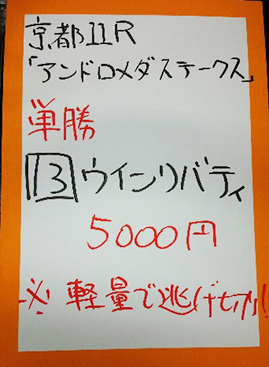 京都11R
「アンドロメダステークス」
単勝
13 ウインリバティ
5000円
※軽量で逃げ切り!